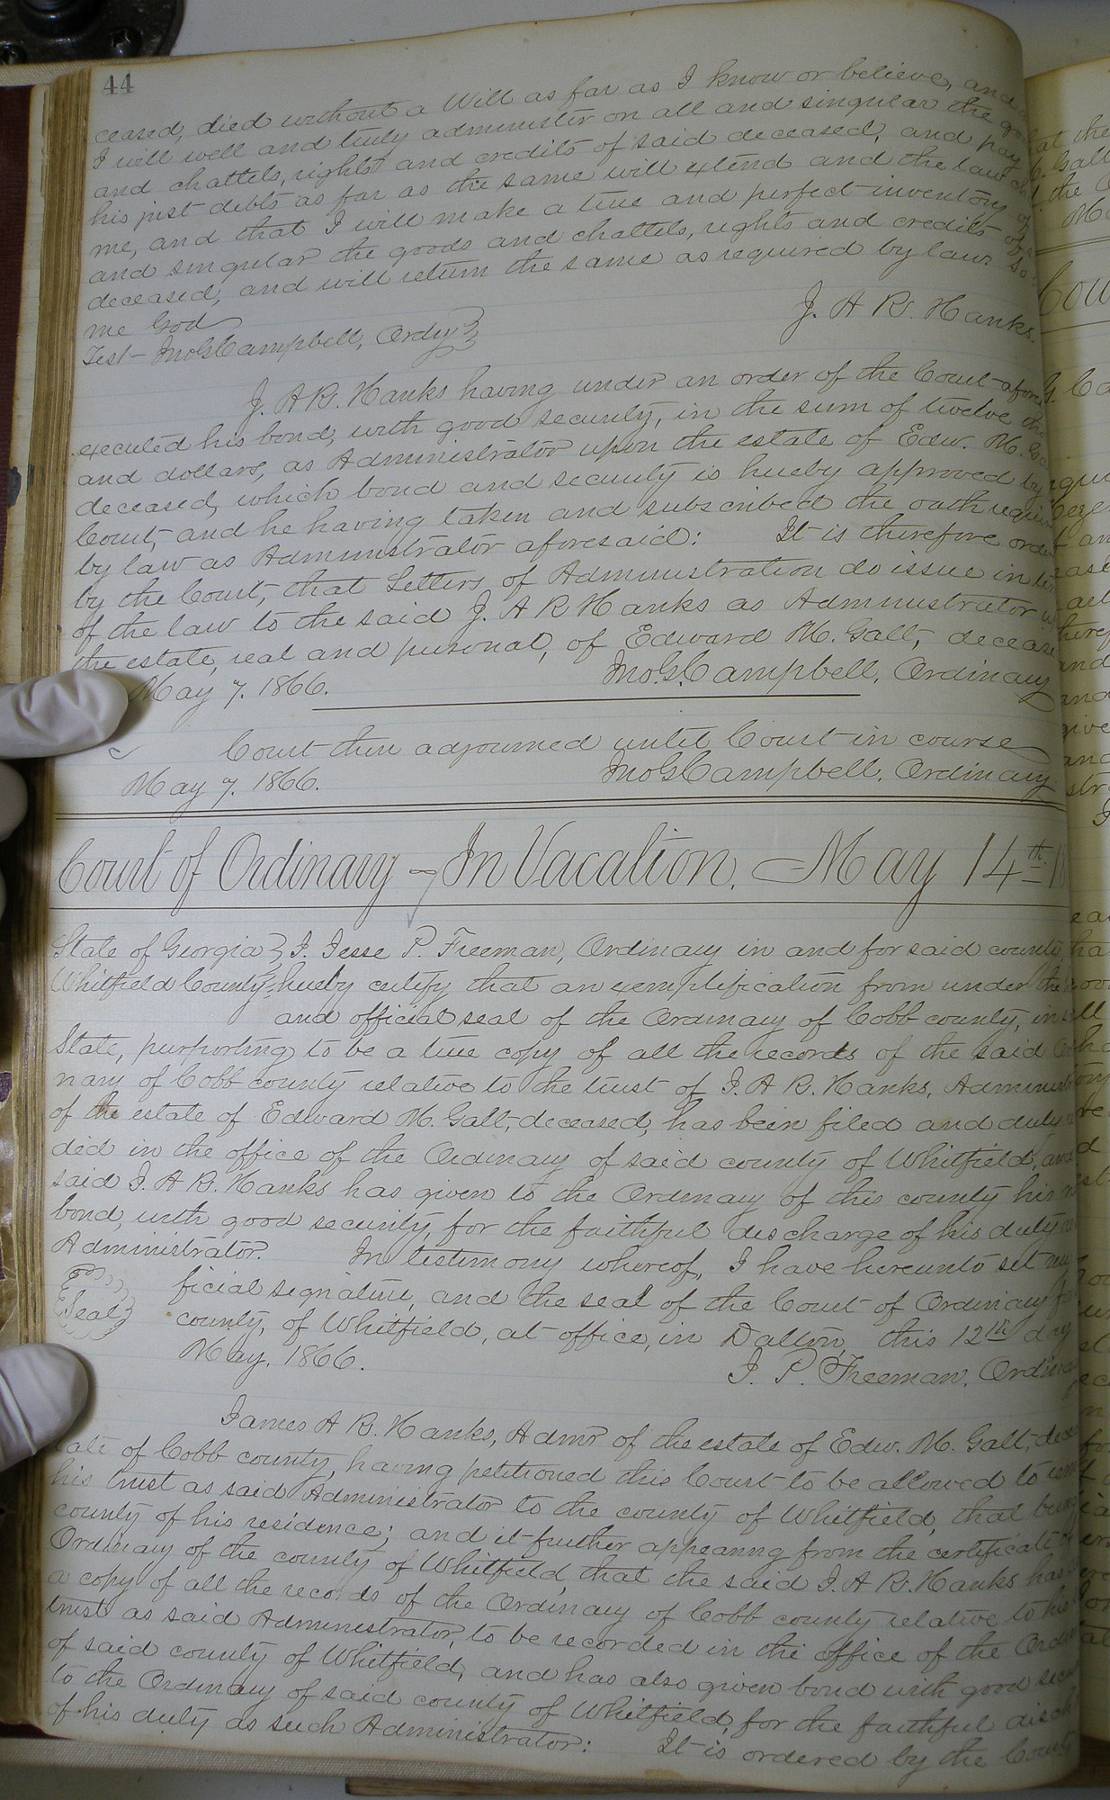 44
ceased, died without a Will as far as I know or believe, and
I will well and truly administer on all and singular the
and chattels, rights and credits of said deceased, and pay
his just debts as far as the same will extend and the law
me, and that I will make a true and perfect inventory of
and singular the goods and chattels, rights and credits of
deceased, and will return the same as required by law. So
me God
J. A. R. Hanks.
Test- Jno G. Campbell, Ordy
J. A R. Hanks having under an order of the Court
executed his bond, with good security, in the sum of twelve
and dollars, as Administrator upon the estate of Edw. M.
deceased, which bond and security is hereby approved by
Court, and he having taken and subscribed the oath
by law as Administrator aforesaid: It is therefore
by the Court, that Letters of Administration do issue in
of the law to the said J. A R Hanks as Administrator
the estate, real and personal, of Edward M. Galt,
May 7. 1866. Jno. G. Campbell, Ordinary
Court then adjourned until Court in course
May 7. 1866. Jno G. Campbell, Ordinary
Court of Ordinary - In Vacation. May 14th
State of Georgia } I. Jesse P. Freeman, Ordinary in and for said county
Whitfield County } hereby certify that an exemplification from under the
and official seal of the Ordinary of Cobb county, in
State, purporting to be a true copy of all the records of the said
nary of Cobb county relative to the trust of J. A R. Hanks,
of the estate of Edward M. Galt, deceased, has been filed and duly
ded in the office of the Ordinary of said county of Whitfield, and
said J. A R. Hanks has given to the Ordinary of this county his
bond, with good security, for the faithful discharge of his duty
Administrator. In testimony whereof, I have hereunto set my
ficial signature, and the seal of the Court of Ordinary
Seal
county, of Whitfield, at office, in Dalton, this 12th day
May, 1866. J. P. Freeman,
James A R. Hanks, Admr of the estate of Edw. M. Galt,
late of Cobb county, having petitioned this Court to be allowed to
his trust as said Administrator to the county of Whitfield, that being
county of his residence; and it further appearing from the certificate
Ordinary of the county of Whitfield, that the said J. A R. Hanks has
a copy of all the records of the Ordinary of Cobb county relative to his
trust as said Administrator, to be recorded in the office of the
of said county of Whitfield, and has also given bond with good
to the Ordinary of said county of Whitfield, for the faithful
of his duty as such Administrator: It is ordered by the Court